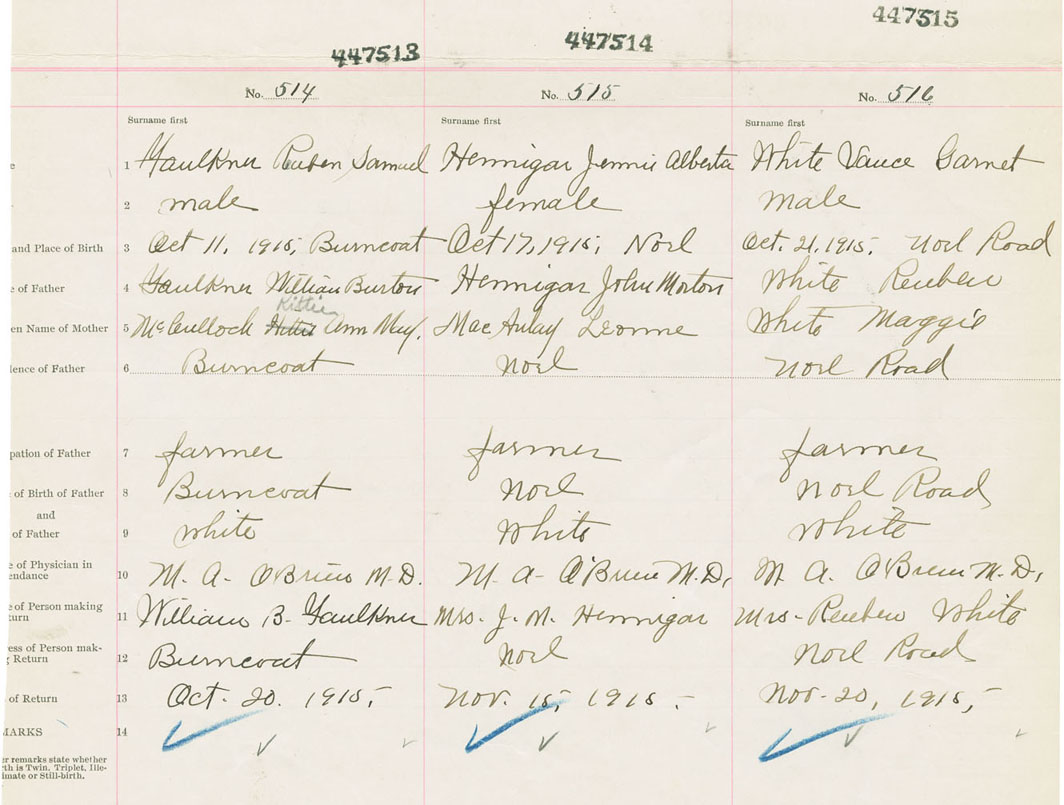 447513 447514 447515
No. 514 No. 515 No. 516
Surname first Surname first Surname first
e 1 Faulkner Reuben Samuel Hennigar Jennie Alberta White Vance Garnet
2 male female male
and Place of Birth 3 Oct 11, 1915, Burncoat Oct 17, 1915, Noel Oct. 21, 1915, Noel Road
e of Father 4 Faulkner William Burton Hennigar John Morton White Reuben
Kittie
en Name of Mother 5 McCullock Ann May. MacAulay Leonne White Maggie
dence of Father 6 Burncoat Noel Noel Road
pation of Father 7 farmer farmer farmer
of Birth of Father 8 Burncoat Noel Noel Road
and
of Father 9 white White white
e of Physician in
endance 10 M. A. O'Brien M.D. M. A. O'Brien M.D. M. A. O'Brien M.D.
e of Person making
turn 11 William B. Faulkner Mrs. J. M. Hennigar Mrs. Reuben White
ess of Person mak-
g Return 12 Burncoat Noel Noel Road
of Return 13 Oct. 20. 1915, Nov. 15, 1915. Nov. 20, 1915,
MARKS 14
er remarks state whether
th is Twin, Triplet, Ille-
imate or Still-birth.